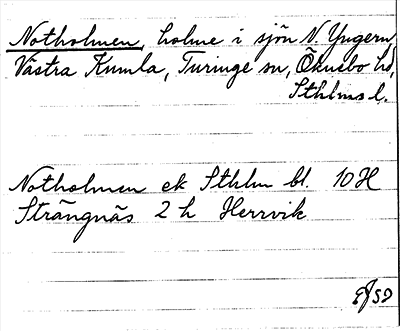 Notholmen, holme i sjön N. Yngern,
Västra Kumla, Turinge sn, Öknebo hd,
Sthlms l.
Notholmen ek Sthlm bl. 10H
Strängnäs 2 h Herrvik
59